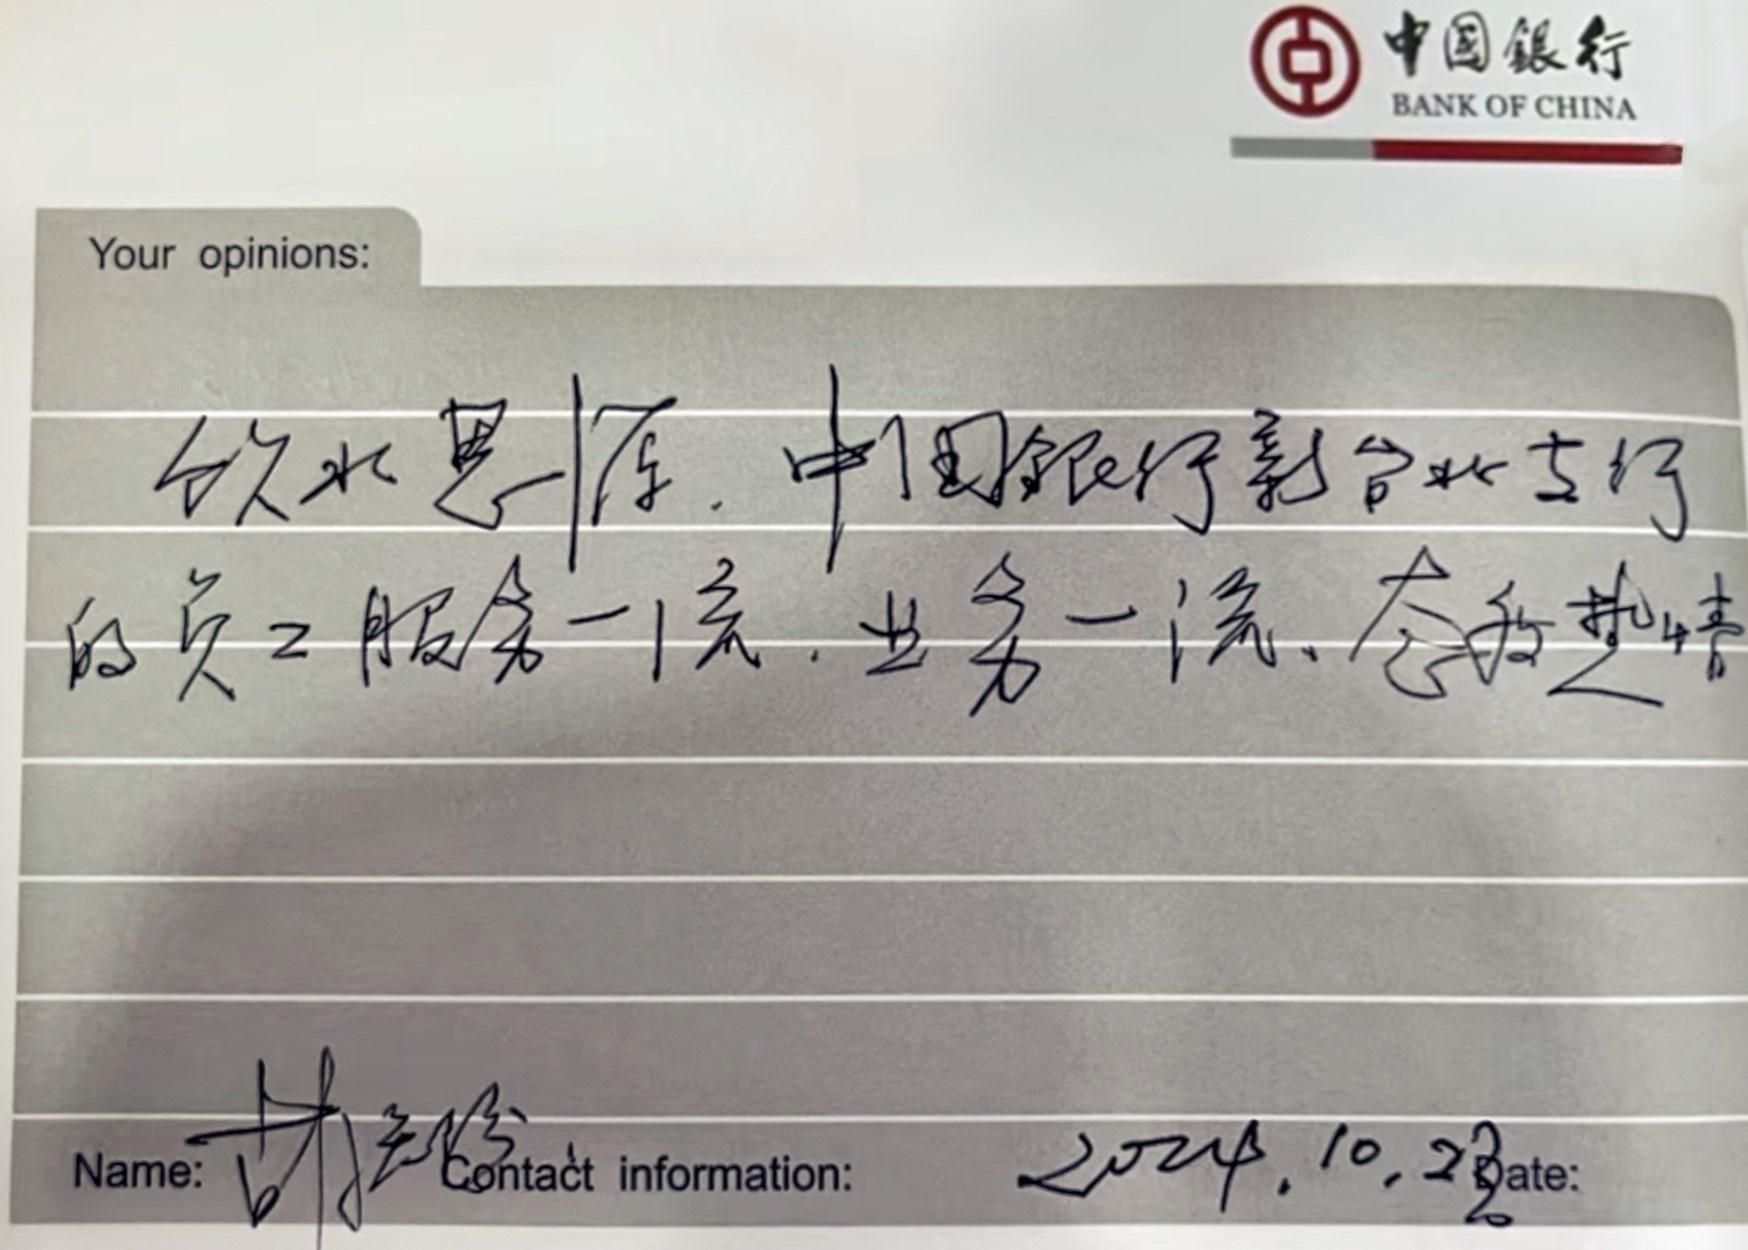 中国銀行
BANK OF CHINA
Your opinions:
饮水思源.中国銀行新台北支行
的员工服务一流.业务一流、态度热情
Name:
Contact information:
2024.10.23
Date: